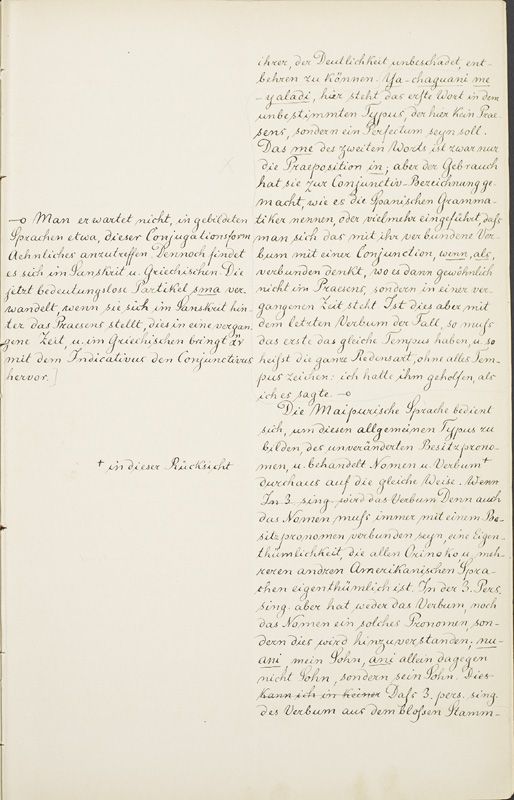 ihrer, der Deutlichkeit unbeschadet, ent-
behren zu können. Ya-chaguani me
-yaladi, hier steht das erste Wort in dem
unbestimmten Typus, der hier kein Prae-
sens, sondern ein Perfectum seyn soll.
Das me des zweiten Worts ist zwar nur
die Praeposition in; aber der Gebrauch
hat sie zur Conjunctiv-Bezeichnung ge-
macht, wie es die Spanischen Gramma-
tiker nennen, oder vielmehr eingeführt, daſs
man sich das mit ihr verbundene Ver-
bum mit einer Conjunction, wenn, als,
verbunden denkt, wo es dann gewöhnlich
nicht im Praesens, sondern in einer ver-
gangenen Zeit steht. Ist dies aber mit
dem letzten Verbum der Fall, so muſs
das erste das gleiche Tempus haben, u. so
heiſst die ganze Redensart, ohne alles Tem-
pus zeichen: ich hatte ihm geholfen, als
ich es sagte. —o
—o Man erwartet nicht, in gebildeten
Sprachen etwa, dieser Conjugationsform
Aehnliches anzutreffen. Dennoch findet
es sich im Sanskrit u. Griechischen. Die
jetzt bedeutungslose Partikel sma ver-
wandelt, wenn sie sich im Sanskrit hin-
ter das Praesens stellt, dies in eine vergan-
gene Zeit, u. im Griechischen bringt ἄν
mit dem Indicativus den Conjunctivus
hervor.]
Die Maipurische Sprache bedient
sich, um diesen allgemeinen Typus zu
bilden, des unveränderten Besitzprono-
men, u. behandelt Nomen u. Verbum†
† in dieser Rücksicht
durchaus auf die gleiche Weise. Wenn
In 3. sing. wird das Verbum Denn auch
das Nomen muſs immer mit einem Be-
sitzpronomen verbunden seyn, eine Eigen-
thümlichkeit, die allen Orinoko u. meh-
reren andren Amerikanischen Spra-
chen eigenthümlich ist. In der 3. Pers.
sing. aber hat weder das Verbum, noch
das Nomen ein solches Pronomen, son-
dern dies wird hinzuverstanden; nu-
ani, mein Sohn, ani allein dagegen
nicht Sohn, sondern sein Sohn. Dies
kann ich in keiner Daſs 3. pers. sing.
des Verbum aus dem bloſsen Stamm-